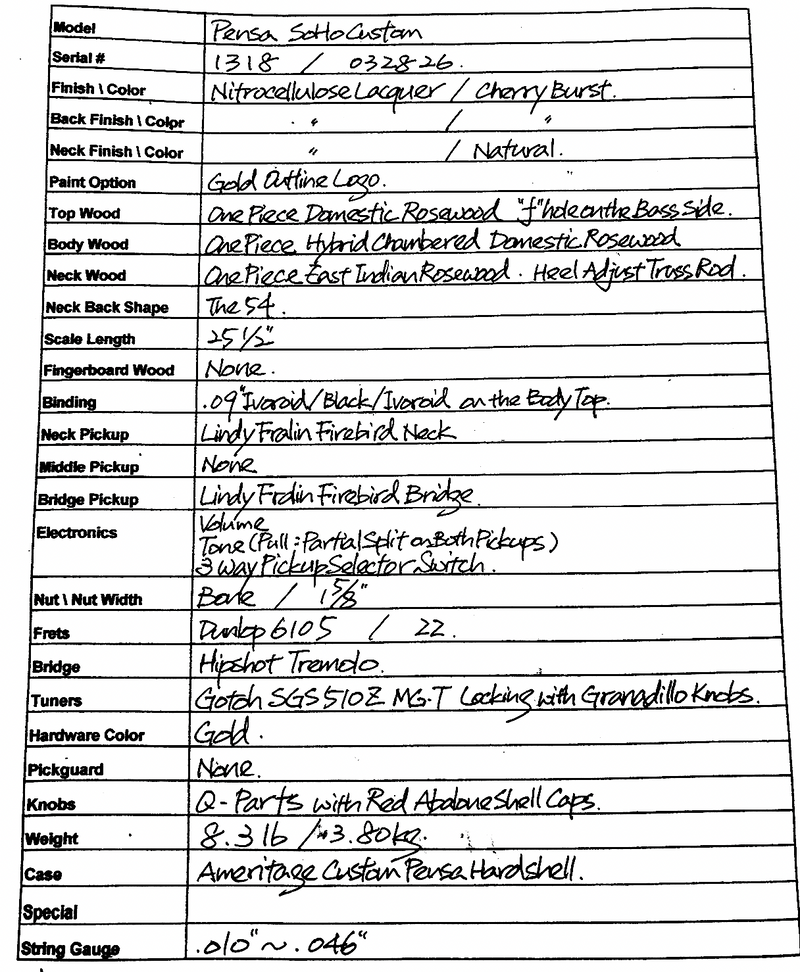 Model Pensa SoHo Custom
Serial # 1318 / 032826.
Finish \ Color Nitrocellulose Lacquer / Cherry Burst.
Back Finish \ Color 〃 / 〃
Neck Finish \ Color 〃 / Natural.
Paint Option Gold Outline Logo.
Top Wood One Piece Domestic Rosewood "f" hole on the Bass Side.
Body Wood One Piece Hybrid Chambered Domestic Rosewood
Neck Wood One Piece East Indian Rosewood. Heel Adjust Truss Rod.
Neck Back Shape The 54.
Scale Length 25 1/2"
Fingerboard Wood None.
Binding .09" Ivoroid/Black/Ivoroid on the Body Top.
Neck Pickup Lindy Fralin Firebird Neck
Middle Pickup None
Bridge Pickup Lindy Fralin Firebird Bridge.
Electronics Volume
Tone (Pull : Partial Split on Both Pickups)
3 way Pickup Selector Switch.
Nut \ Nut Width Bone / 1 5/8"
Frets Dunlop 6105 / 22.
Bridge Hipshot Tremolo.
Tuners Gotoh SGS510Z MG-T Locking with Granadillo Knobs.
Hardware Color Gold.
Pickguard None.
Knobs Q-Parts with Red Abalone Shell Caps.
Weight 8.3 lb / 3.80kg.
Case Ameritage Custom Pensa Hardshell.
Special
String Gauge .010" ~ .046"